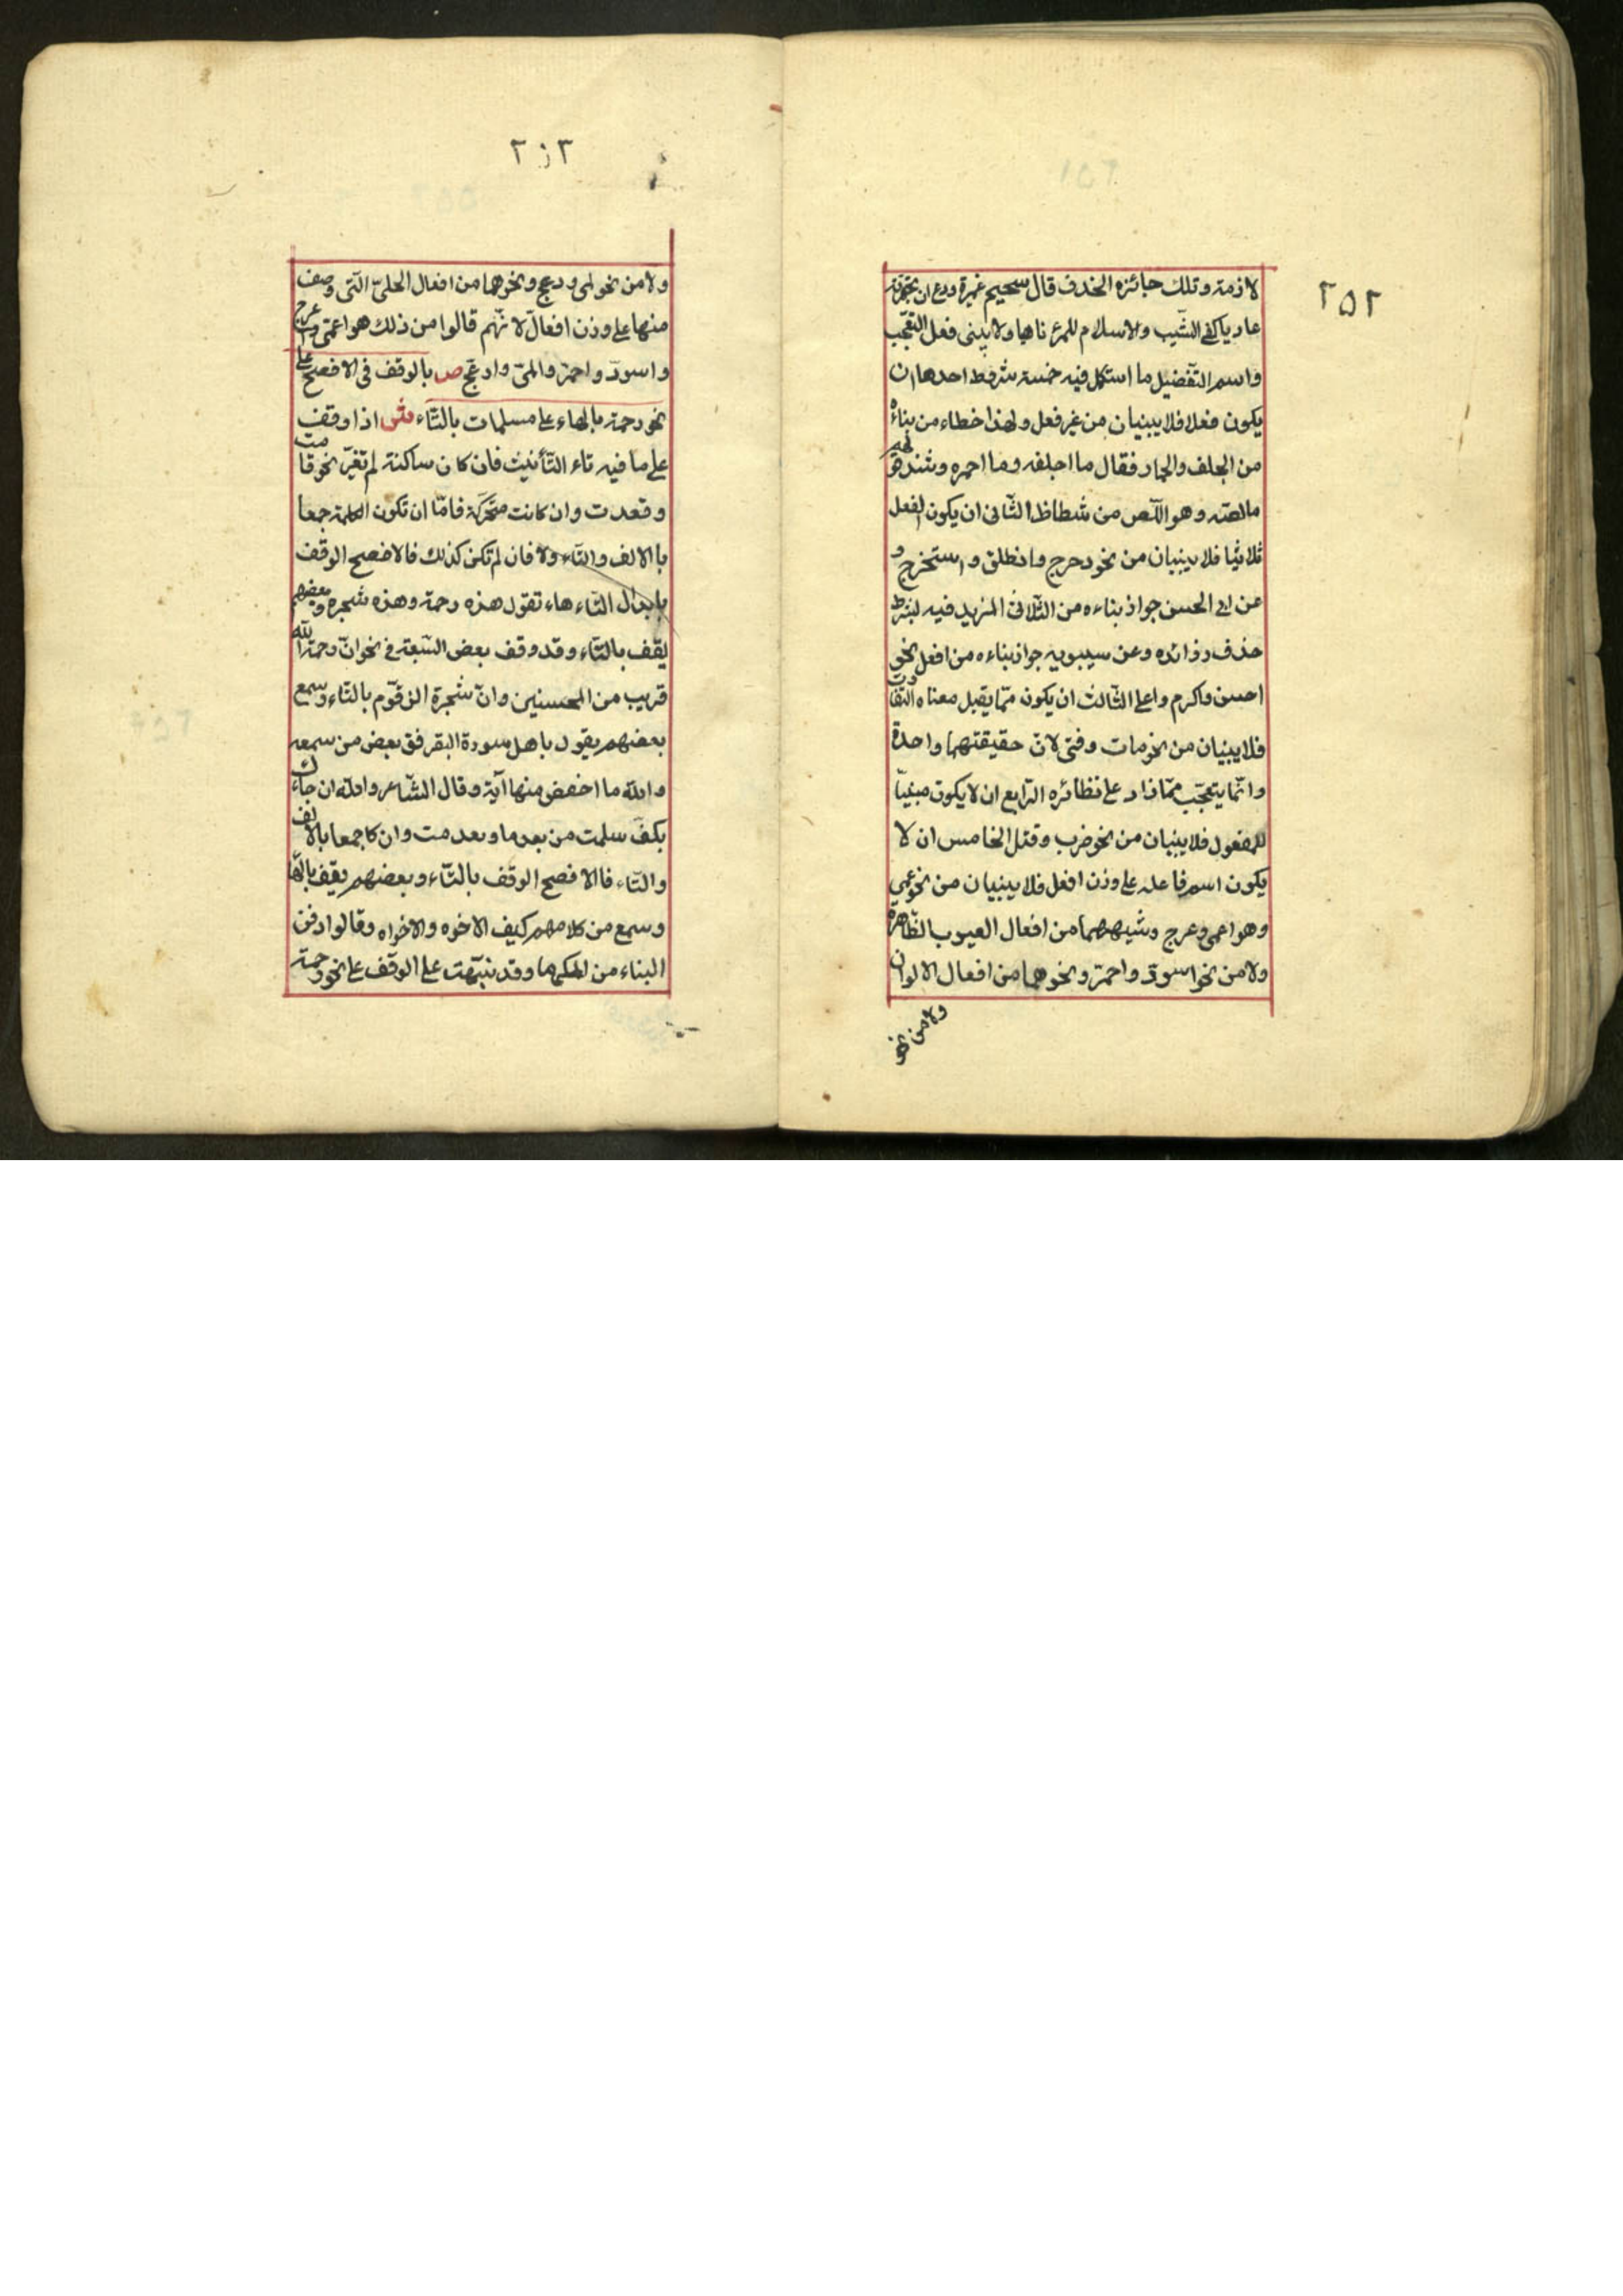 ٢٥٢
لازمة وتلك جائزه الحذف قال سحيم عميرة ودع ان تجهزت
عاديا كفى الشّيب والاسلام للمرء ناهيا ولا يبنى فعل التعّجّب
واسم التّفضيل ما استكمل فيه خمسة شروط احدها ان
يكون فعلا فلا يبنيان من غير فعل ولهذا خطاء من بناءه
من الجلف والحمار فقال ما اجلفه وما احمره وشذ قولهم
مالصّه وهو الّلص من شظاظ الثّانى ان يكون الفعل
ثلاثيا فلا يبنيان من نحو دحرج وانطلق واستخرج و
عن ابى الحسن جواز بناءه من الثّلاثى المزيد فيه بشرط
حذف زوائده وعن سيبويه جواز بناءه من افعل نحو
احسن واكرم واعلى الثّالث ان يكون ممّا يقبل معناه التّفاوت
فلا يبنيان من نحو مات وفنى لانّ حقيقتهما واحدة
وانّما يتعجّب ممّا زاد على نظائره الرّابع ان لا يكون مبنيّا
للمفعول فلا يبنيان من نحو ضرب وقتل الخامس ان لا
يكون اسم فاعله على وزن افعل فلا يبنيان من نحو عمى
وهو اعمى وعرج وشبههما من افعال العيوب الظّاهرة
ولا من نحو اسودّ واحمرّ ونحوهما من افعال الالوان
ولا من نحو
٢٥٣
ولا من نحو لمى ودعج ونحوهما من افعال الحلىّ الّتى وصف
منها على وزن افعالّ لانّهم قالوا من ذلك هو اعمى واعرج
واسودّ واحمرّ والمىّ وادعجّ ص بالوقف فى الافصح على
نحو رحمة بالهاء على مسلمات بالتّاء ش اذا وقف
على ما فيه تاء التّأنيث فان كان ساكنة لم تغيّر نحو قامت
وقعدت وان كانت متحّركة فامّا ان تكون الكلمة جمعا
باالالف والتّاء ولا فان لم تكن كذلك فالافصح الوقف
بابدال التّاء هاء تقول هذه رحمة وهذه شجره وبعضهم
يقف بالتّاء وقد وقف بعض السّبعة فى نحو انّ رحمة الله
قريب من المحسنين وانّ شجرة الزّقّوم بالتّاء وسمع
بعضهم يقول ياهل سورة البقر فق بعض من سمعه
والله ما احفض منها آية وقال الشّاعر والله انجاك
بكفّ سلمت من بعد ما وبعد مت وان كا جمعا بالالف
والتّاء فاالافصح الوقف بالتّاء وبعضهم يقف بالهّا
وسمع من كلامهم كيف الاخوه والاخواه وقالوا دفن
البناء من المكرماه وقد نبّهت على الوقف على نحو رحمة